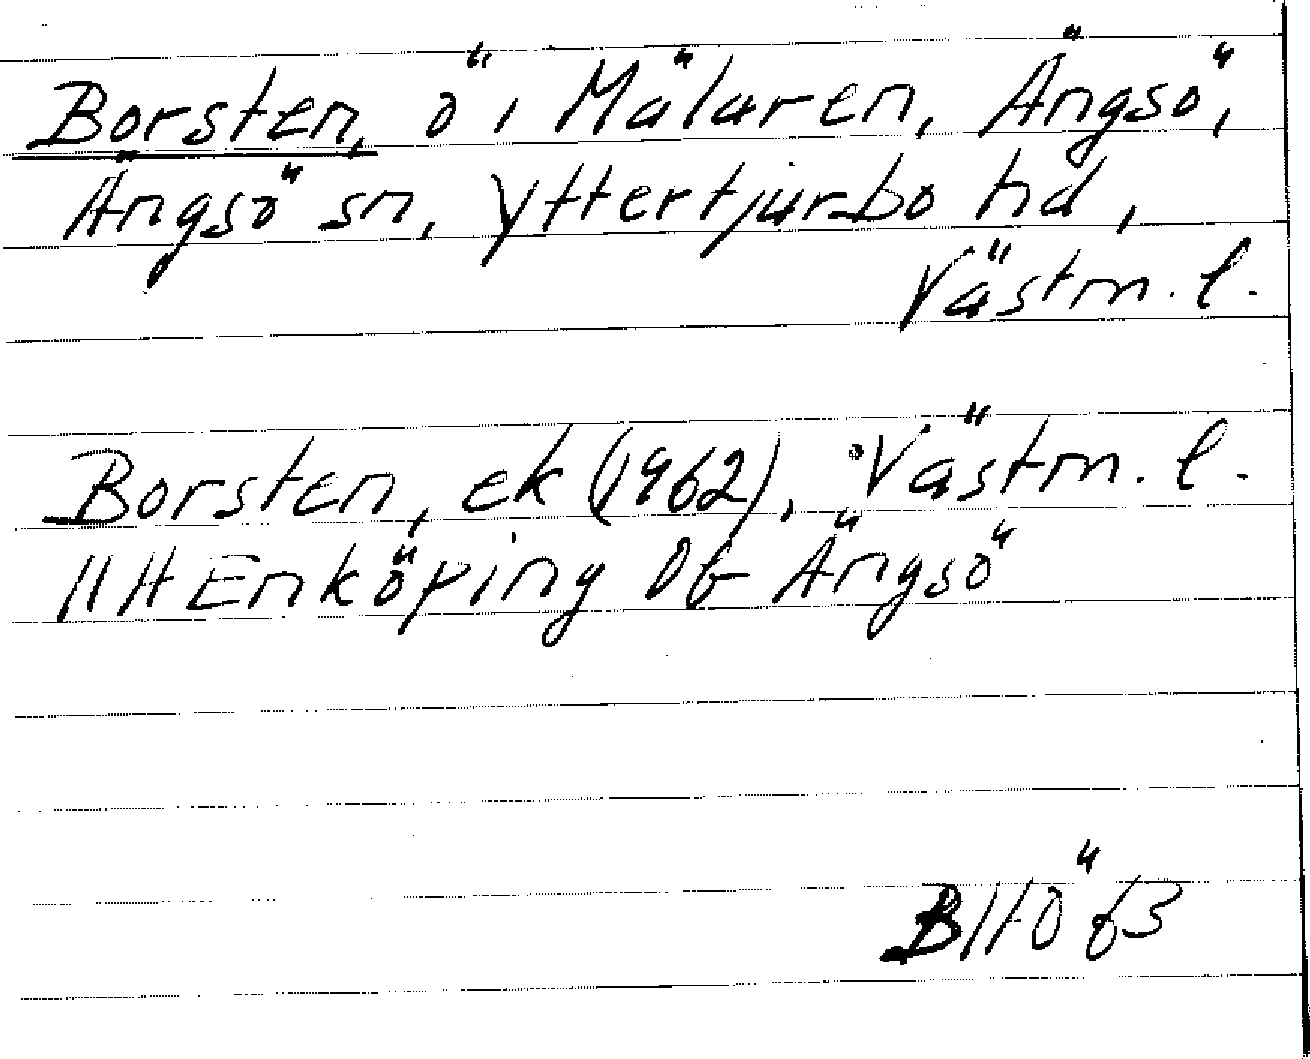 Borsten, ö i Mälaren, Ängsö,
Ängsö sn, Yttertjurbo hd,
Västm. l.
Borsten, ek (1962), Västm. l.
11H Enköping 0b Ängsö
BHÖ 63